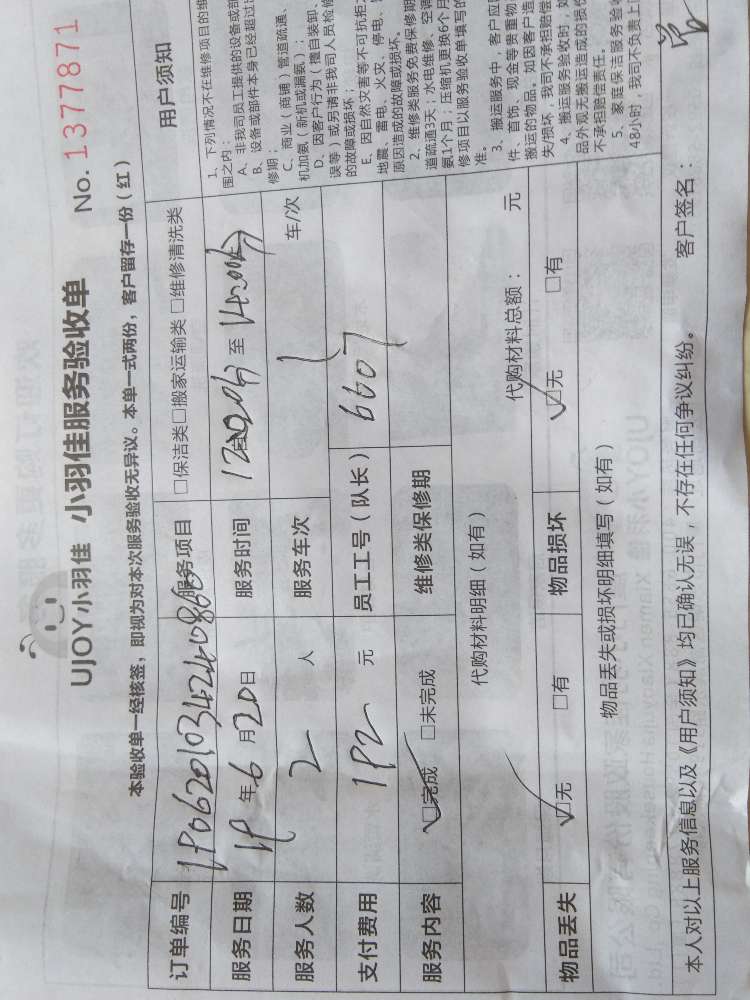 UJOY小羽佳 小羽佳服务验收单 No. 1377871
本验收单一经核签，即视为对本次服务验收无异议。本单一式两份，客户留存一份（红）
订单编号 服务项目 □保洁类□搬家运输类 □维修清洗类
服务日期 19 年 6 月 20 日 服务时间 至
服务人数 2 人 服务车次 1 车/次
支付费用 192 元 员工工号（队长） 6607
服务内容 ☑完成 □未完成 维修类保修期
代购材料明细（如有） 代购材料总额： 元
物品丢失 ☑无 □有 物品损坏 ☑无 □有
物品丢失或损坏明细填写（如有）
本人对以上服务信息以及《用户须知》均已确认无误，不存在任何争议纠纷。 客户签名：
用户须知
1、下列情况不在维修项目的维
围之内：
A、非我司员工提供的设备或部
B、设备或部件本身已经超过
修期；
C、商业（商铺）管道疏通、
机加氨（新机或漏氨）；
D、因客户行为（擅自装卸、
误等）或另请非我司人员检修
的故障或损坏；
E、因自然灾害等不可抗拒
地震、雷电、火灾、停电、
原因造成的故障或损坏。
2、维修类服务免费保修期
道疏通3天；水电维修、空调
氨1个月；压缩机更换6个月
修项目以服务验收单填写的
准。
3、搬运服务中，客户应
件、首饰、现金等贵重物
搬运的物品，如因客户造
失/损坏，我司不承担赔偿
4、搬运服务验收时，如
品外观无搬运造成的损
不承担赔偿责任。
5、家庭保洁服务验收
48小时，我司不负责上